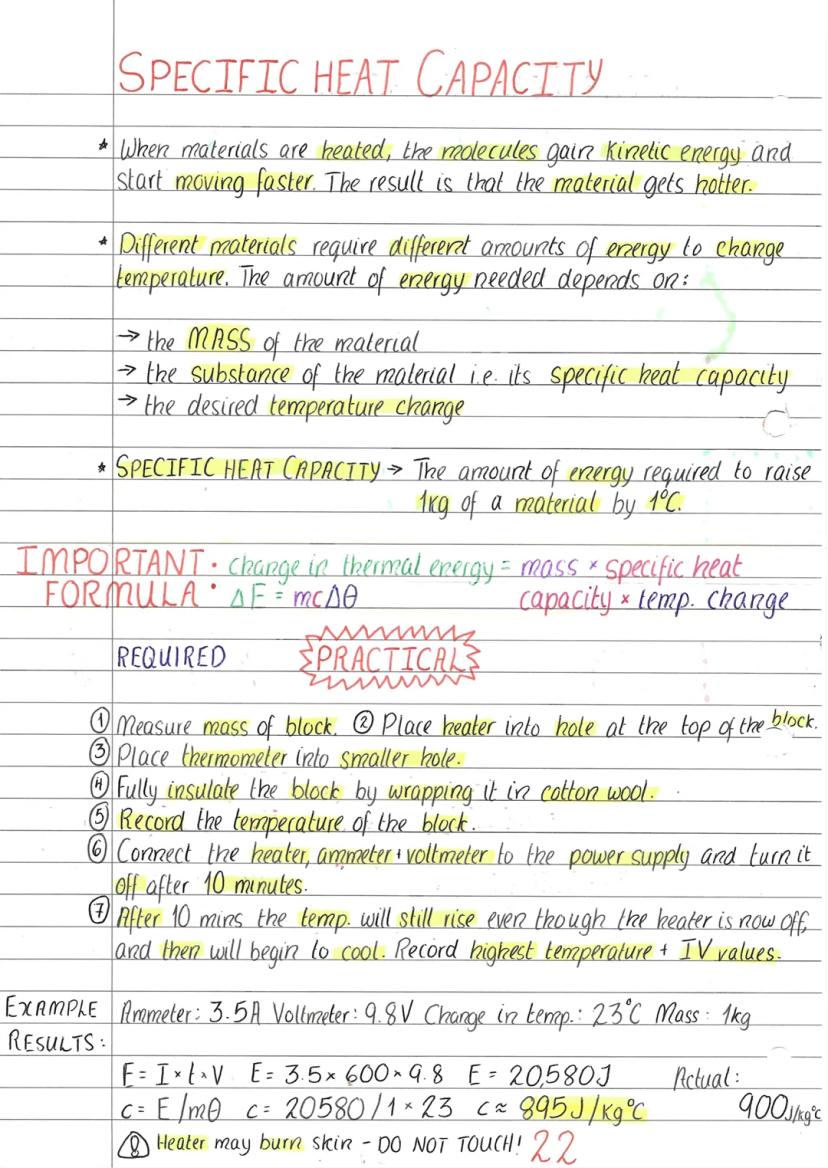 SPECIFIC HEAT CAPACITY
* When materials are heated, the molecules gain kinetic energy and
start moving faster. The result is that the material gets hotter.
* Different materials require different amounts of energy to change
temperature. The amount of energy needed depends on:
→ the MASS of the material
→ the substance of the material i.e. its specific heat capacity
→ the desired temperature change
* SPECIFIC HEAT CAPACITY → The amount of energy required to raise
1kg of a material by 1°C.
IMPORTANT : change in thermal energy = mass × specific heat
FORMULA : ΔE = mcΔθ capacity × temp. change
REQUIRED PRACTICAL
① Measure mass of block. ② Place heater into hole at the top of the block.
③ Place thermometer into smaller hole.
④ Fully insulate the block by wrapping it in cotton wool.
⑤ Record the temperature of the block.
⑥ Connect the heater, ammeter + voltmeter to the power supply and turn it
off after 10 minutes.
⑦ After 10 mins the temp. will still rise even though the heater is now off,
and then will begin to cool. Record highest temperature + IV values.
EXAMPLE Ammeter: 3.5A Voltmeter: 9.8V Change in temp.: 23°C Mass: 1kg
RESULTS:
E = I × t × V E = 3.5 × 600 × 9.8 E = 20,580J Actual:
c = E/mθ c = 20580/1 × 23 c ≈ 895J/kg°C 900J/kg°C
Heater may burn skin - DO NOT TOUCH! 22